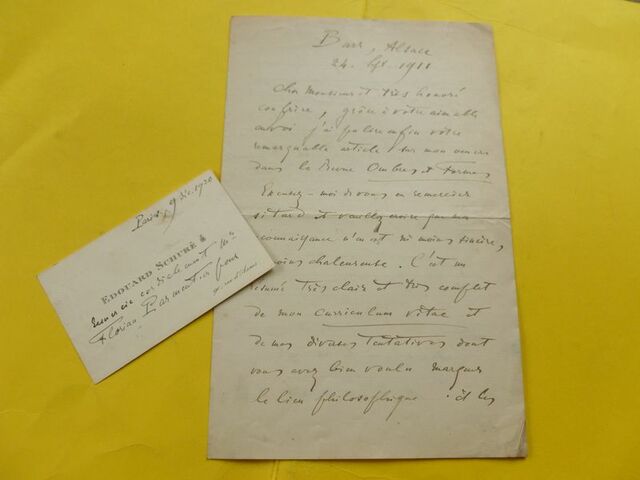 Barr, Alsace
24. Sept. 1911
Cher Monsieur et très honoré
confrère, grâce à votre aimable
envoi j'ai pu lire enfin votre
remarquable article sur mon oeuvre
dans la Revue Ombres et Formes
Excusez-moi de vous en remercier
si tard et veuillez croire que ma
reconnaissance n'en est ni moins sincère,
ni moins chaleureuse. C'est un
résumé très clair et très complet
de mon curriculum vitae et
de mes diverses tentatives dont
vous avez bien voulu marquer
le lien philosophique. Et les
Paris, 9 Dec. 1920
EDOUARD SCHURÉ
remercie cordialement Mr
Florian Parmentier pour